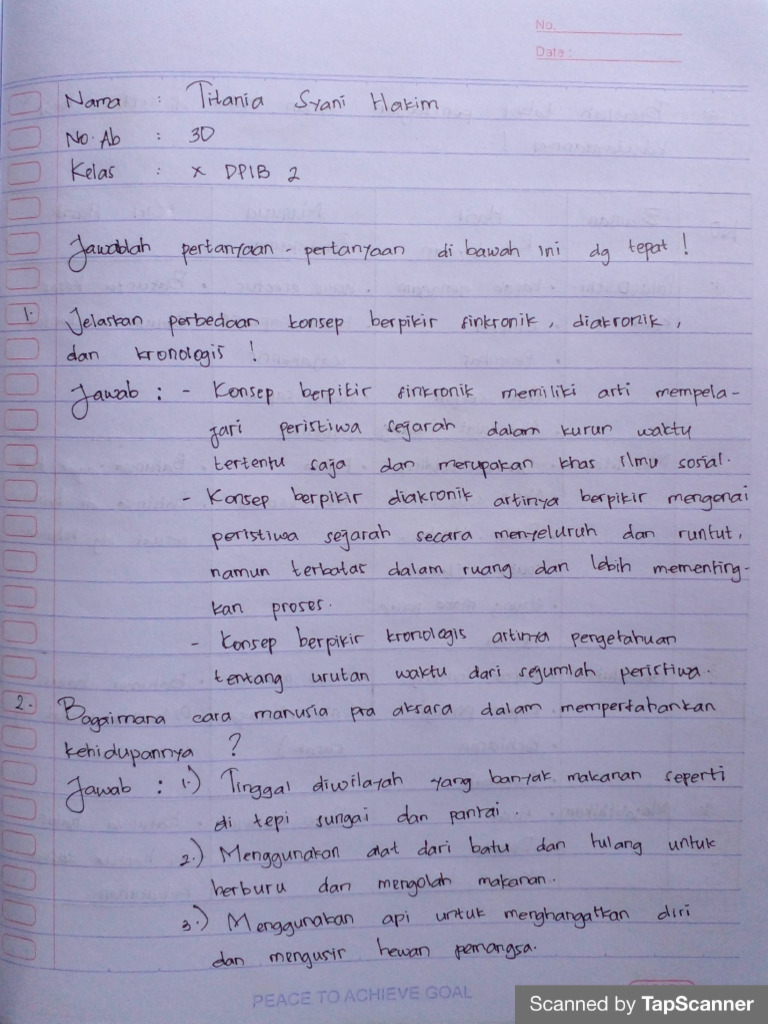 No.
Date :
Nama : Titania Syani Hakim
No. Ab : 30
Kelas : X DPIB 2
Jawablah pertanyaan - pertanyaan di bawah ini dg tepat !
1. Jelaskan perbedaan konsep berpikir sinkronik, diakronik,
dan kronologis !
Jawab : - Konsep berpikir sinkronik memiliki arti mempela-
jari peristiwa sejarah dalam kurun waktu
tertentu saja dan merupakan khas ilmu sosial.
- Konsep berpikir diakronik artinya berpikir mengenai
peristiwa sejarah secara menyeluruh dan runtut,
namun terbatas dalam ruang dan lebih mementing-
kan proses.
- Konsep berpikir kronologis artinya pengetahuan
tentang urutan waktu dari sejumlah peristiwa.
2. Bagaimana cara manusia pra aksara dalam mempertahankan
kehidupannya ?
Jawab : 1.) Tinggal diwilayah yang banyak makanan seperti
di tepi sungai dan pantai.
2.) Menggunakan alat dari batu dan tulang untuk
berburu dan mengolah makanan.
3.) Menggunakan api untuk menghangatkan diri
dan mengusir hewan pemangsa.
PEACE TO ACHIEVE GOAL
Scanned by TapScanner